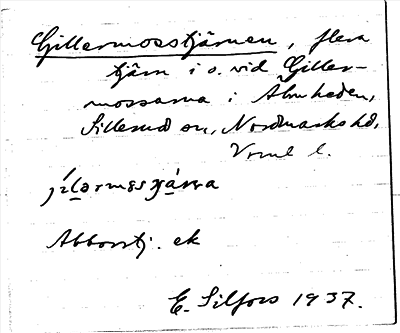 Gillermosstjärnen, flera
tjärn i o. vid Giller-
mossarna i Älmheden,
Sillerud sn, Nordmarks hd,
Vrml l.
Abborrtj. ek
E. Silfors 1937.